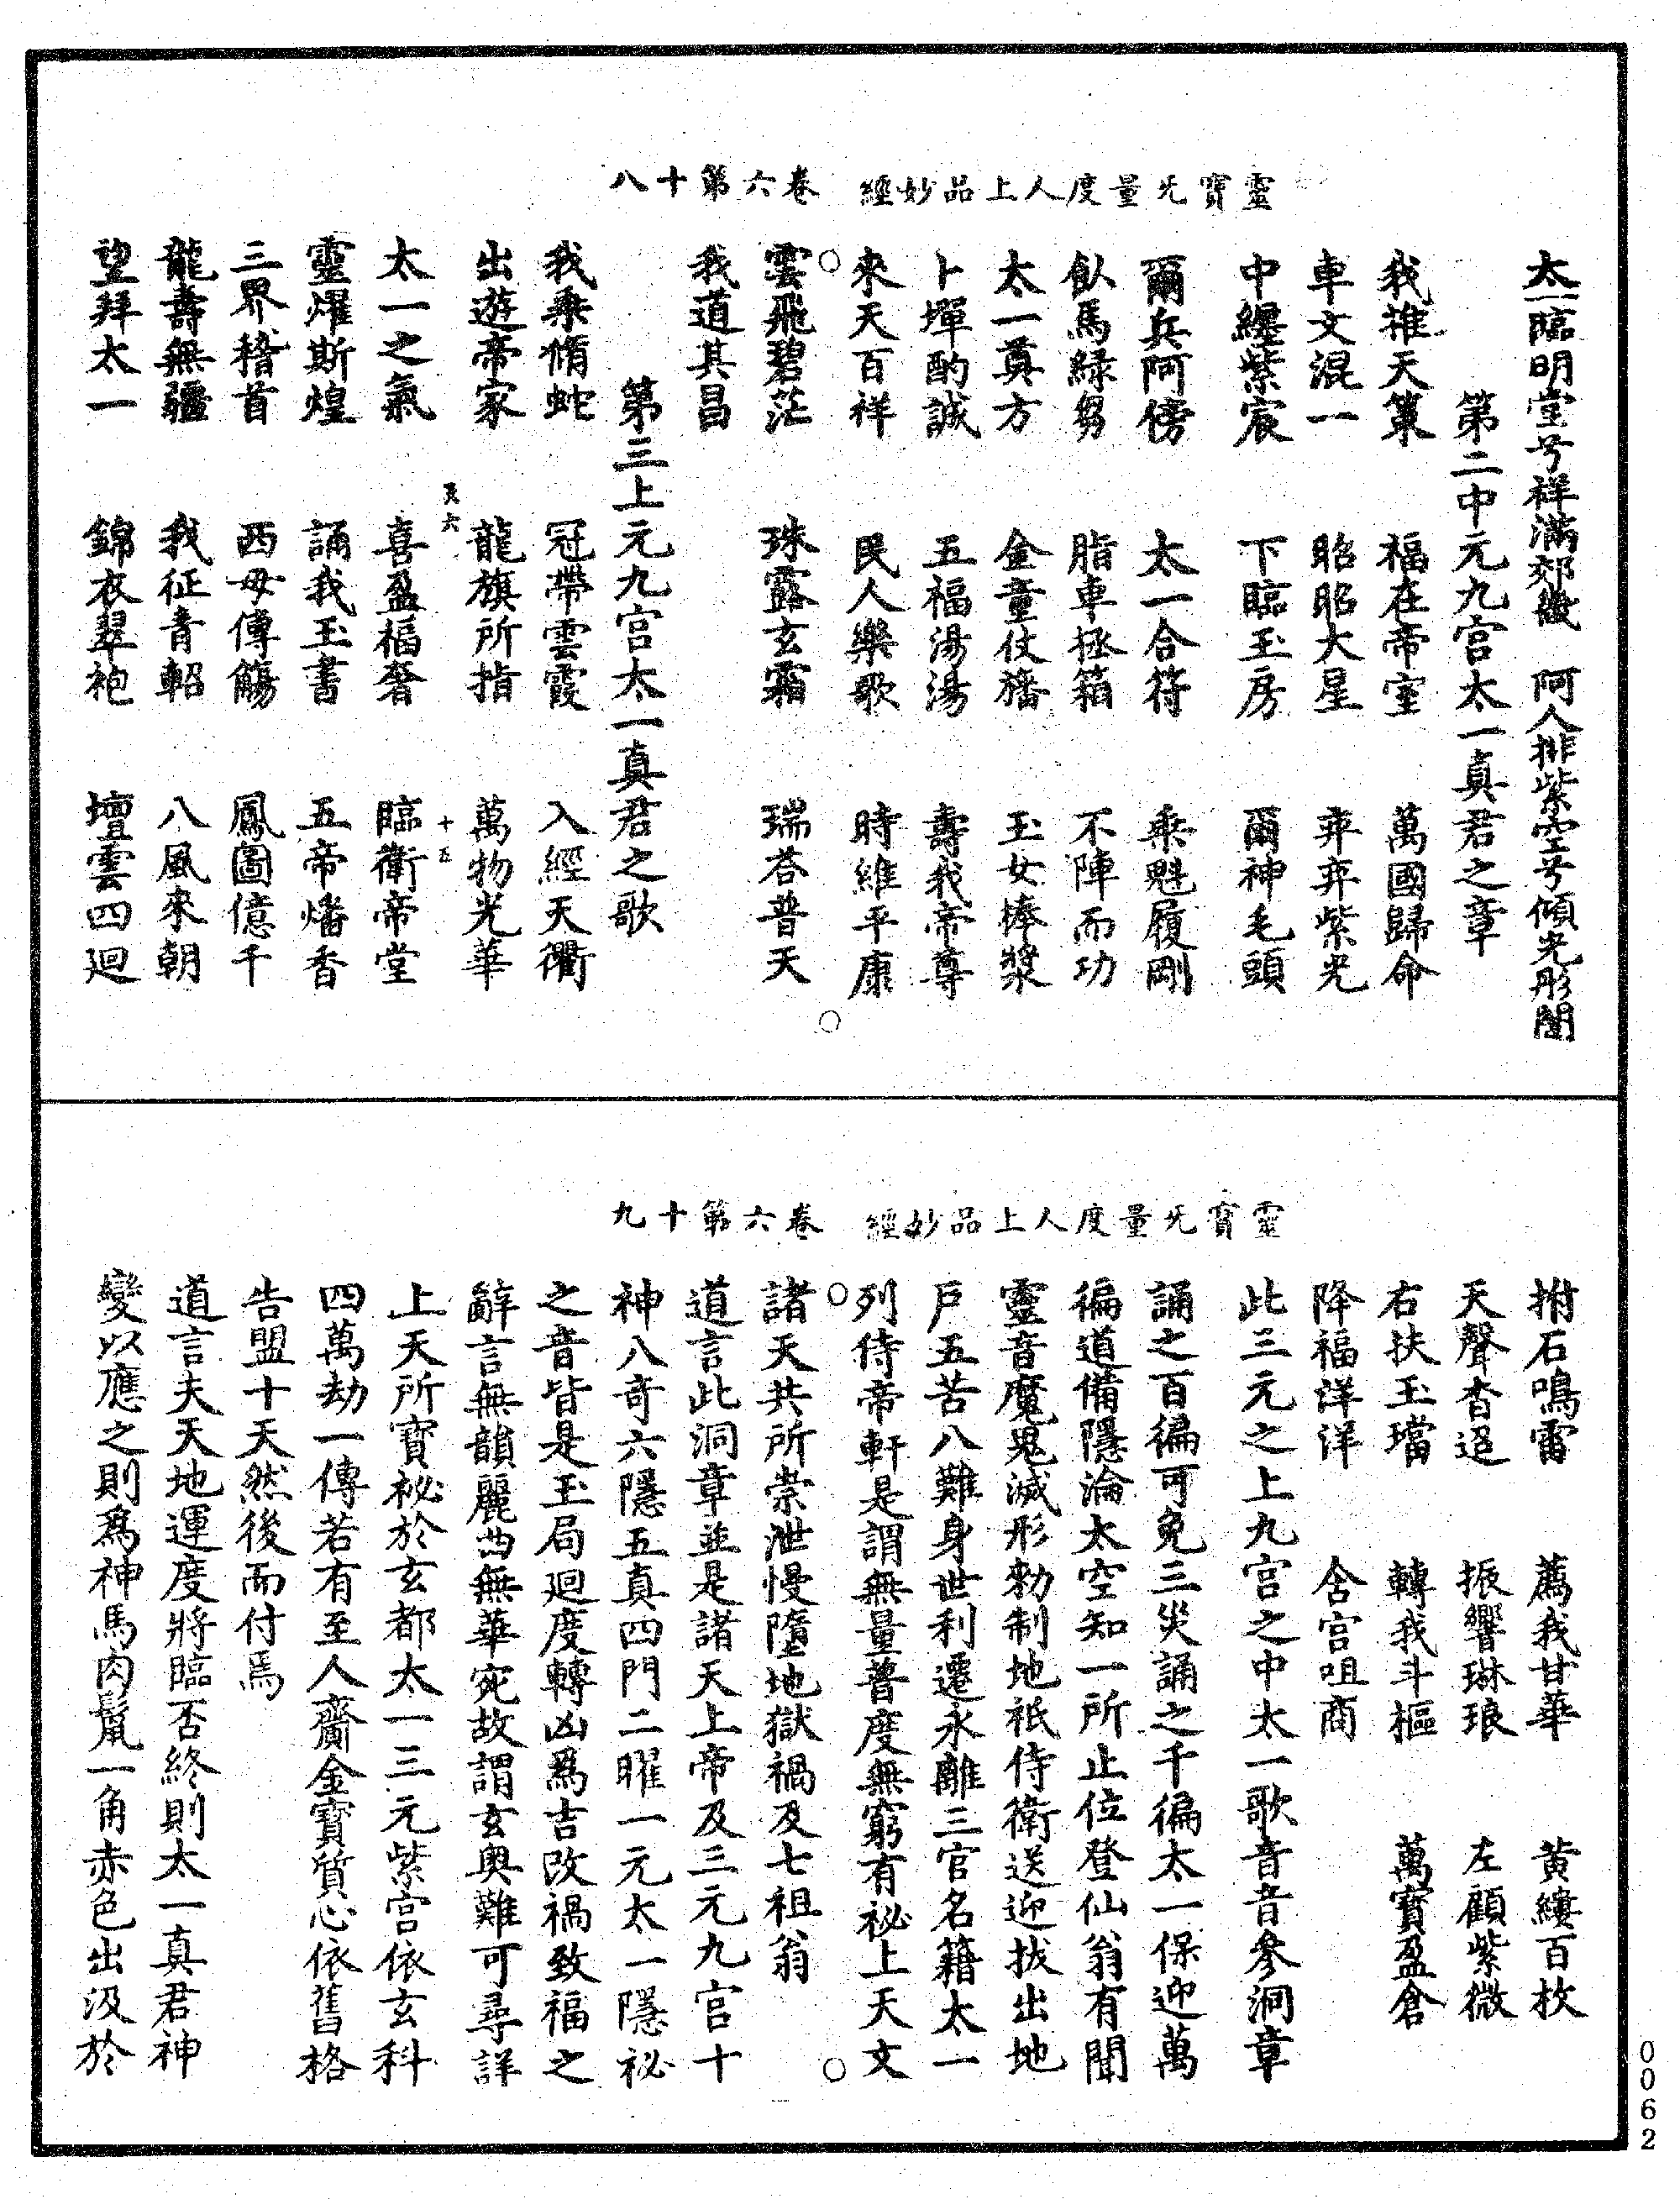 靈寶无量度人上品妙經 卷六第十八
太一臨明堂兮祥滿郊畿 阿人排紫空兮傾光彤闈
第二中元九宮太一真君之章
我推天策 福在帝室 萬國歸命
車文混一 昭昭大星 弈弈紫光
中纏紫宸 下臨玉房 爾神毛頭
爾兵阿傍 太一合符 乘魁履剛
飲馬綠芻 脂車拯箱 不陣而功
太一奠方 金童仗旛 玉女捧漿
卜墠酌誠 五福湯湯 壽我帝尊
來天百祥 民人樂歌 時維平康
雲飛碧茫 珠露玄霜 瑞荅普天
我道其昌
第三上元九宮太一真君之歌
我乘脩蛇 冠帶雲霞 入經天衢
出遊帝家 龍旗所指 萬物光華
太一之氣 喜盈福奢 臨衛帝堂
靈燿斯煌 誦我玉書 五帝燔香
三界稽首 西母傳觴 鳳圖億千
龍壽無疆 我征青軺 八風來朝
望拜太一 錦衣翠袍 壇雲四迴
靈寶无量度人上品妙經 卷六第十九
拊石鳴雷 薦我甘華 黃縷百枚
天聲杳迢 振響琳琅 左顧紫微
右扶玉璫 轉我斗樞 萬寶盈倉
降福洋洋 含宮咀商
此三元之上九宮之中太一歌音音參洞章
誦之百徧可免三災誦之千徧太一保迎萬
徧道備隱淪太空知一所止位登仙翁有聞
靈音魔鬼滅形勑制地祇侍衛送迎拔出地
戶五苦八難身世利遷永離三官名籍太一
列侍帝軒是謂無量普度無窮有祕上天文
諸天共所崇泄慢墮地獄禍及七祖翁
道言此洞章並是諸天上帝及三元九宮十
神八奇六隱五真四門二曜一元太一隱祕
之音皆是玉局迴度轉凶爲吉改禍致福之
辭言無韻麗曲無華宛故謂玄奧難可尋詳
上天所寶祕於玄都太一三元紫宮依玄科
四萬劫一傳若有至人齎金寶質心依舊格
告盟十天然後而付焉
道言夫天地運度將臨否終則太一真君神
變以應之則爲神馬肉鬣一角赤色出汲於
0062